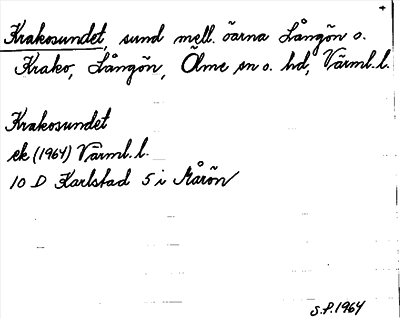 Krakosundet, sund mell. öarna Långön o.
Krako, Långön, Ölme sn o. hd, Värml. l.
Krakosundet
ek (1964) Värml. l.
10 D Karlstad 5 i Mårön
S.P. 1964